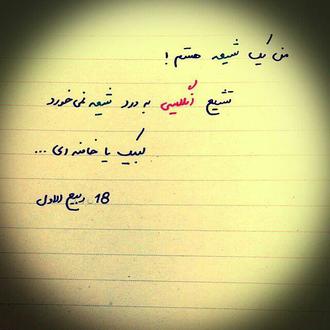 من یک شیعه هستم!
تشیع انگلیسی به درد شیعه نمی‌خورد
لبیک یا خامنه ای...
18 ربیع الاول